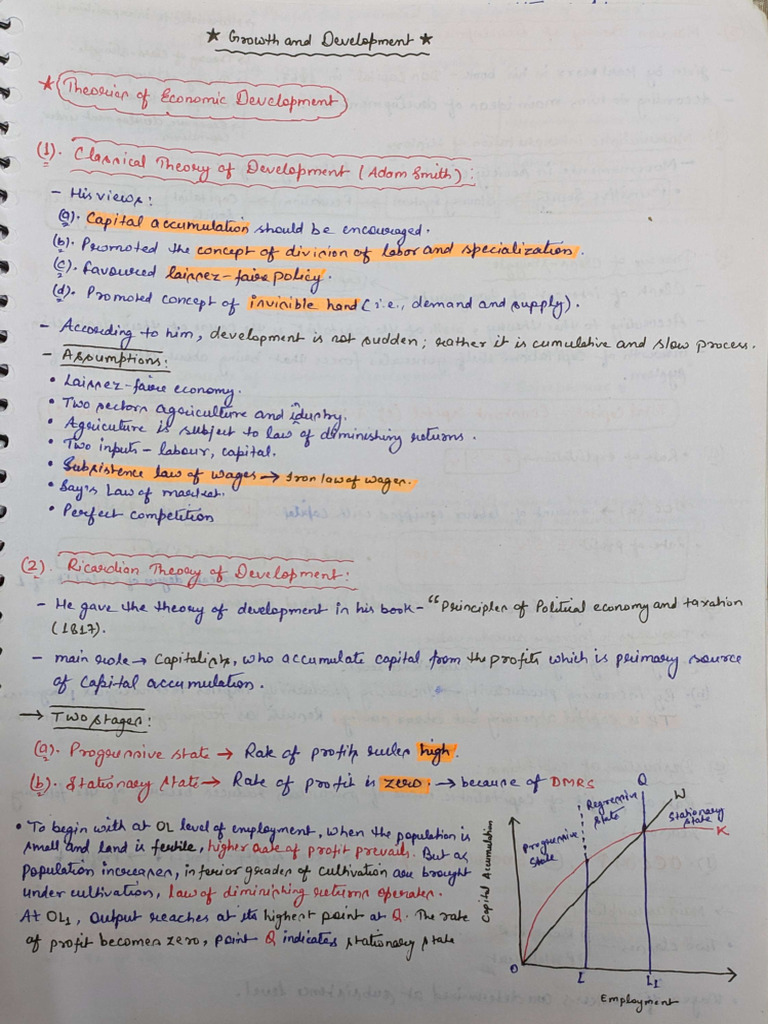 ★ Growth and Development ★
★ Theories of Economic Development
(1). Classical Theory of Development (Adam Smith):
- His views:
(a). Capital accumulation should be encouraged.
(b). Promoted the concept of division of labor and specialization.
(c). Favoured laissez-faire policy.
(d). Promoted concept of invincible hand (i.e., demand and supply).
- According to him, development is not sudden; rather it is cumulative and slow process.
- Assumptions:
• Laissez-faire economy.
• Two sectors agriculture and idustry.
• Agricuture is subject to law of diminishing returns.
• Two inputs - labour, capital.
• Subsistence law of wages → Iron law of wages.
• Say's Law of market.
• Perfect competition
(2). Ricardian Theory of Development:
- He gave the theory of development in his book - "Principles of Political economy and taxation
(1817).
- main role → Capitalists, who accumulate capital from the profits which is primary source
of capital accumulation.
→ Two stages:
(a). Progressive state → Rate of profits rules high.
(b). Stationary state → Rate of profit is zero. → because of DMRS
• To begin with at OL level of employment, when the population is
small and land is fertile, higher rate of profit prevails. But as
population increases, inferior grades of cultivation are brought
under cultivation, law of diminishing returns operates.
At OL1, output reaches at its highest point at Q. The rate
of profit becomes zero, point Q indicates stationary state
Capital Accumulation
Progressive
state
Regressive
state
Q
W
Stationary
state
K
O
L
L1
Employment